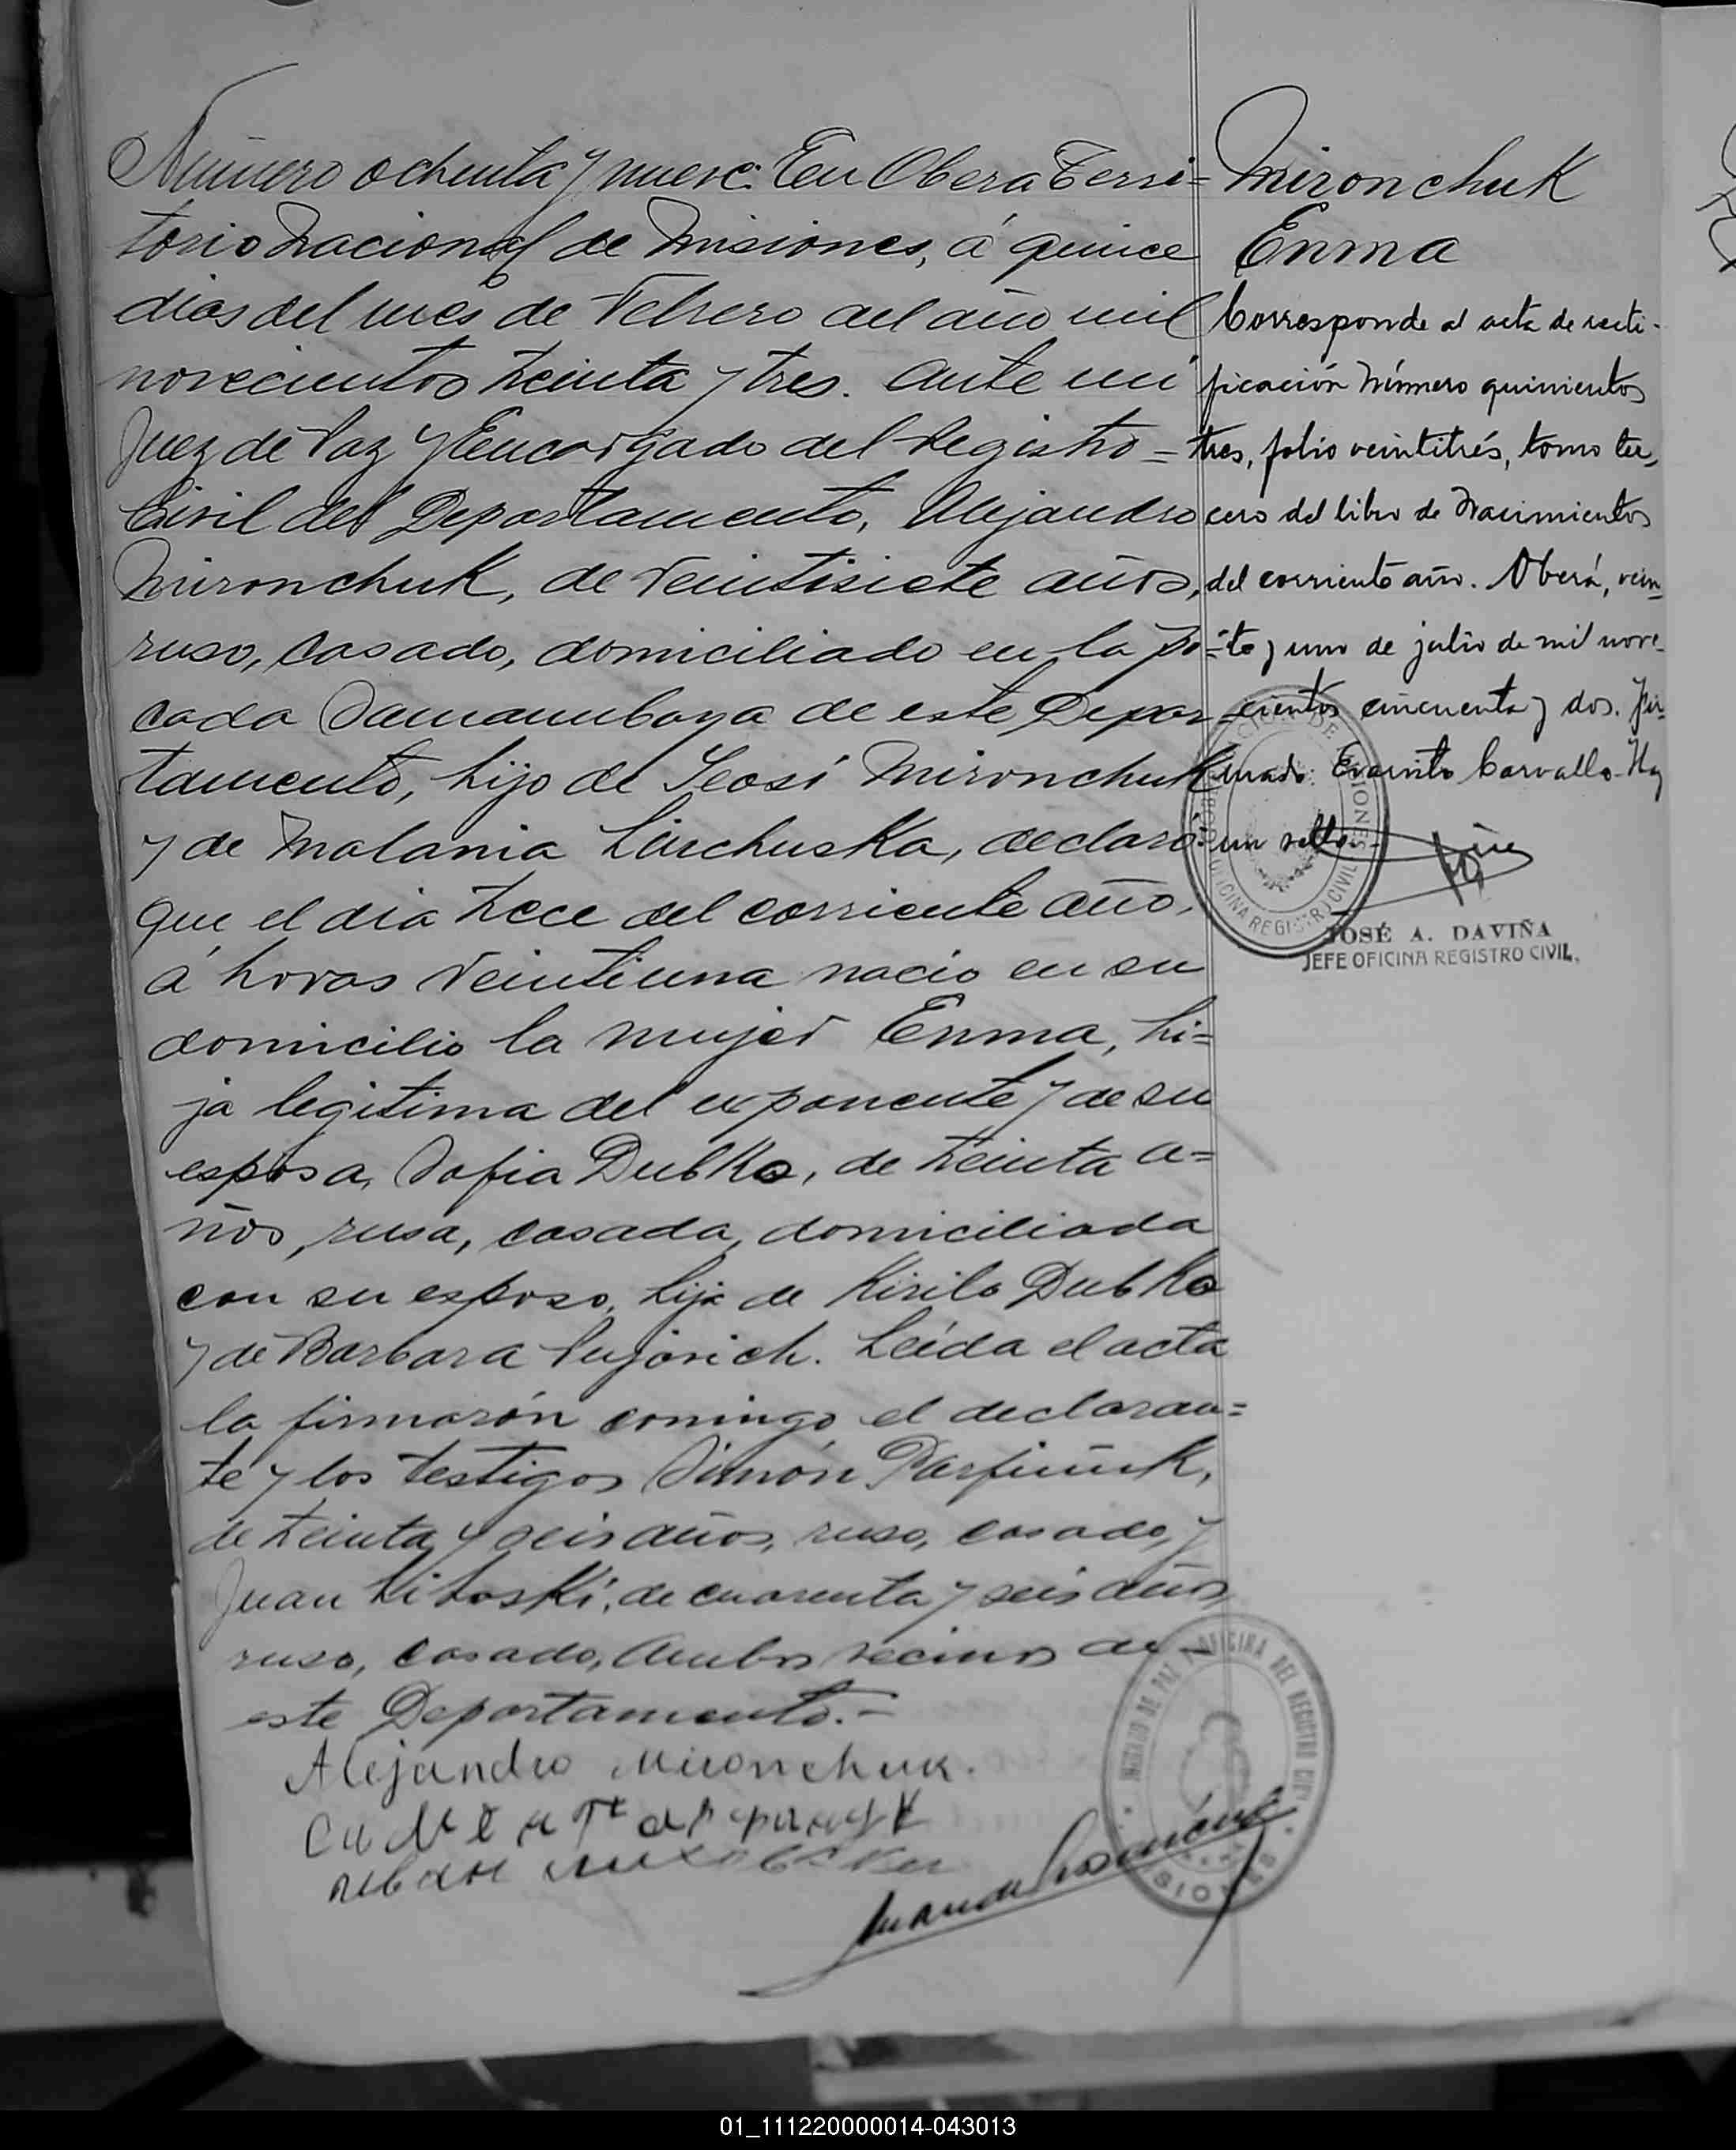 Número ochenta y nueve: En Obera Terri=
torio Nacional de Misiones, á quince
dias del mes de Febrero del año mil
novecientos treinta y tres. Ante mi
Juez de Paz y Encargado del Registro =
Civil del Departamento, Alejandro
Mironchuk, de veintisiete años,
ruso, casado, domiciliado en la pi=
cada Samambaya de este Depar=
tamento, hijo de Teosi Mironchuk
y de Malania Linchuska, declaró:
que el dia trece del corriente año,
á horas veintiuna nació en su
domicilio la mujer Enma, hi=
ja legitima del exponente y de su
esposa, Sofia Dubko, de treinta a=
ños, rusa, casada, domiciliada
con su esposo, hija de Kirilo Dubko
y de Barbara Pujovich. Leida el acta
la firmarón conmigo, el declaran=
te y los testigos Simón Parfiniuk,
de treinta y seis años, ruso, casado, y
Juan Litoski, de cuarenta y seis años
ruso, casado, ambos vecinos de -
este Departamento.-
Alejandro Mironchuk.
Mironchuk
Enma
Corresponde al acta de recti-
ficación Número quinientos
tres, folio veintitrés, tomo ter-
cero del libro de Nacimientos
del corriente año. Oberá, vein-
te y uno de julio de mil nove-
cientos cincuenta y dos. Fir-
mado: Evaristo Carvallo-Hay
un sello.-
JOSÉ A. DAVIÑA
JEFE OFICINA REGISTRO CIVIL.
OFICINA REGISTRO CIVIL
JUZGADO DE PAZ Y OFICINA DEL REGISTRO CIVIL
MISIONES
01_111220000014-043013